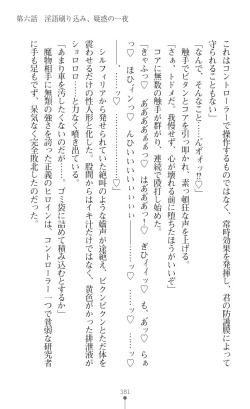 第六話　淫語刷り込み、疑惑の一夜
これはコントローラーで操作するものではなく、常時効果を発揮し、君の防護膜に
守られる」
「なんで、そんなこと……んぎォォっ!?♡」
触手でビタンとコアを引っ叩かれ、素っ頓狂な声を上げる。
「さぁ、トドメだ。我慢せず、心が壊れる前に堕ちたほうがいいぞ」
さらに無数の触手が群がり、連続で殴打し続ける。
「きゃふっ♡　あああああぁぁっ♡　はあああっー！　ぎひィィ♡　あっ♡　らぁ
っ♡　ほひィンっ♡　んひいいいいぃぃぃぃ――ッ♡　――ッ♡　――ッ♡」
シルフィリアから発せられていた絶叫のような嬌声が途絶え、ビクンビクンとただ体を
震わせるだけの性人形と化した。股間からはイキ汁だけではなく、黄色がかった排泄液が
ショロロロ……と力なく噴き出ている。
「あまり車を汚したくないのだが……。ゴミ袋に詰めて積み込むとするか」
魔物相手に無類の強さを誇った正義のヒロインは、コントローラー一つで貧弱な研究者
に手も足もでず、呆気なく完全敗北したのだった。
381